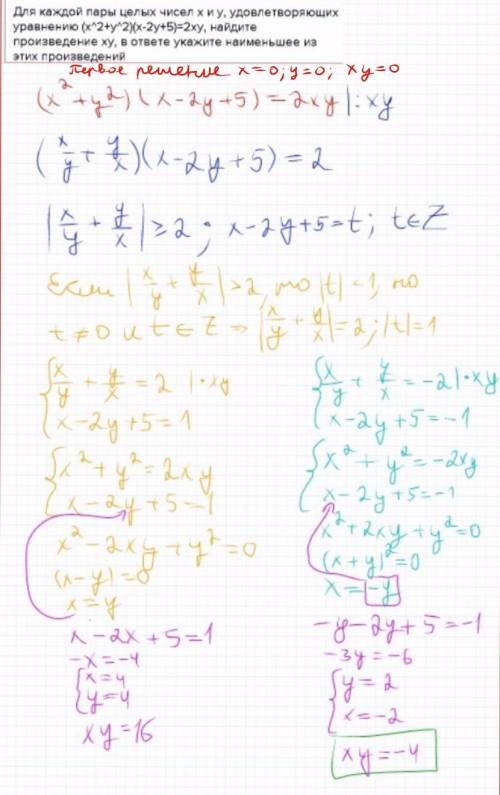 Для каждой пары целых чисел x и y, удовлетворяющих
уравнению (x^2+y^2)(x-2y+5)=2xy, найдите
произведение xy, в ответе укажите наименьшее из
этих произведений
первое решение x=0; y=0; xy=0
(x² + y²)(x-2y+5) = 2xy |:xy
(x/y + y/x)(x-2y+5) = 2
|x/y + y/x| ≥ 2; x-2y+5=t; t∈Z
Если |x/y + y/x| > 2, то |t| < 1, но
t≠0 и t∈Z ⇒ |x/y + y/x| = 2; |t|=1
{ x/y + y/x = 2 |·xy
x-2y+5=1
{ x² + y² = 2xy
x-2y+5=1
x² - 2xy + y² = 0
(x-y)=0
x=y
x-2x+5=1
-x=-4
{ x=4
y=4
xy=16
{ x/y + y/x = -2 |·xy
x-2y+5=-1
{ x² + y² = -2xy
x-2y+5=-1
x²+2xy+y²=0
(x+y)²=0
x=-y
-y-2y+5=-1
-3y=-6
{ y=2
x=-2
xy=-4